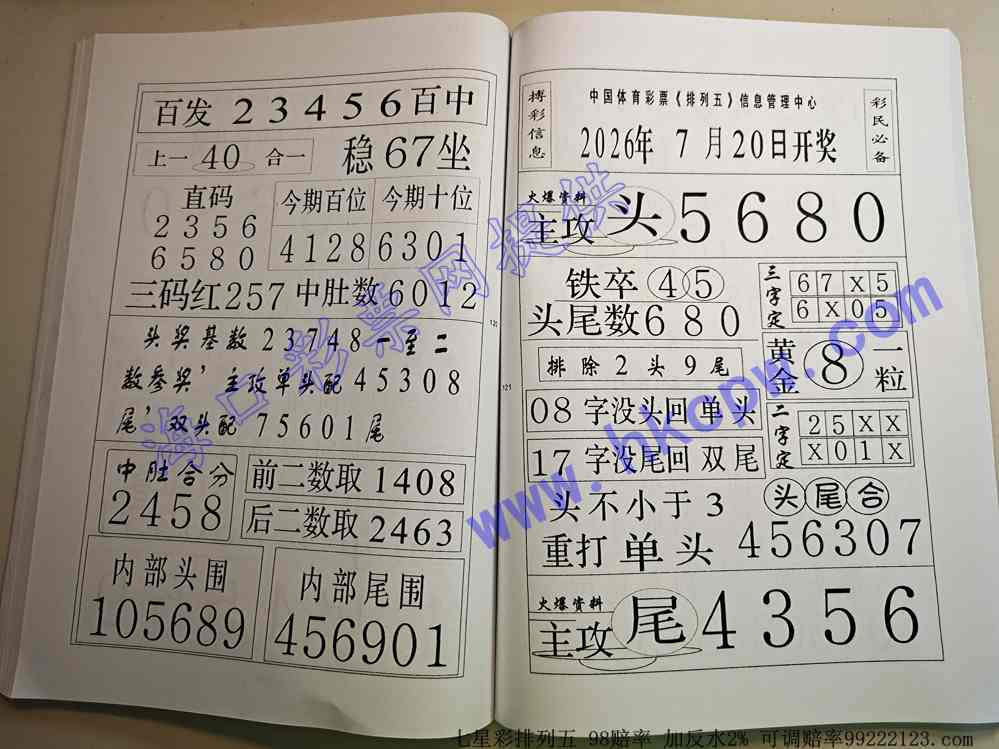 百发 23456 百中
上一 40 合一
稳 67 坐
直码
2356
6580
今期百位
4128
今期十位
6301
三码红257 中肚数6012
头奖基数23748一至二
数参奖,主攻单头配45308
尾,双头配75601尾
中肚合分
2458
前二数取1408
后二数取2463
内部头围
105689
内部尾围
456901
120
搏彩信息
中国体育彩票《排列五》信息管理中心
2026年 7月20日开奖
彩民必备
火爆资料
主攻 头 5680
铁卒 45
头尾数680
三字定
67X5
6X05
排除2头9尾
黄金 8 一粒
08字没头回单头
17字没尾回双尾
二字定
25XX
X01X
头不小于3
头尾合
重打单头 456307
火爆资料
主攻 尾 4356
121
海口彩票网提供
www.hkcpw.com
七星彩排列五 98赔率 加反水2% 可调赔率99222123.com